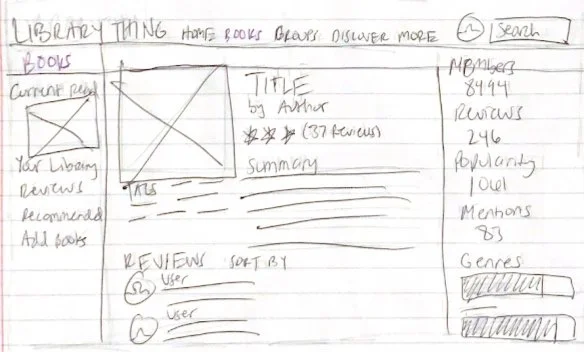 LIBRARY THING HOME BOOKS GROUPS DISCOVER MORE Search
BOOKS
Current Read
Your Library
Reviews
Recommended
Add Books
TITLE
by Author
(37 Reviews)
Summary
TAGS
REVIEWS SORT BY
User
User
Members
8494
Reviews
246
Popularity
1061
Mentions
83
Genres